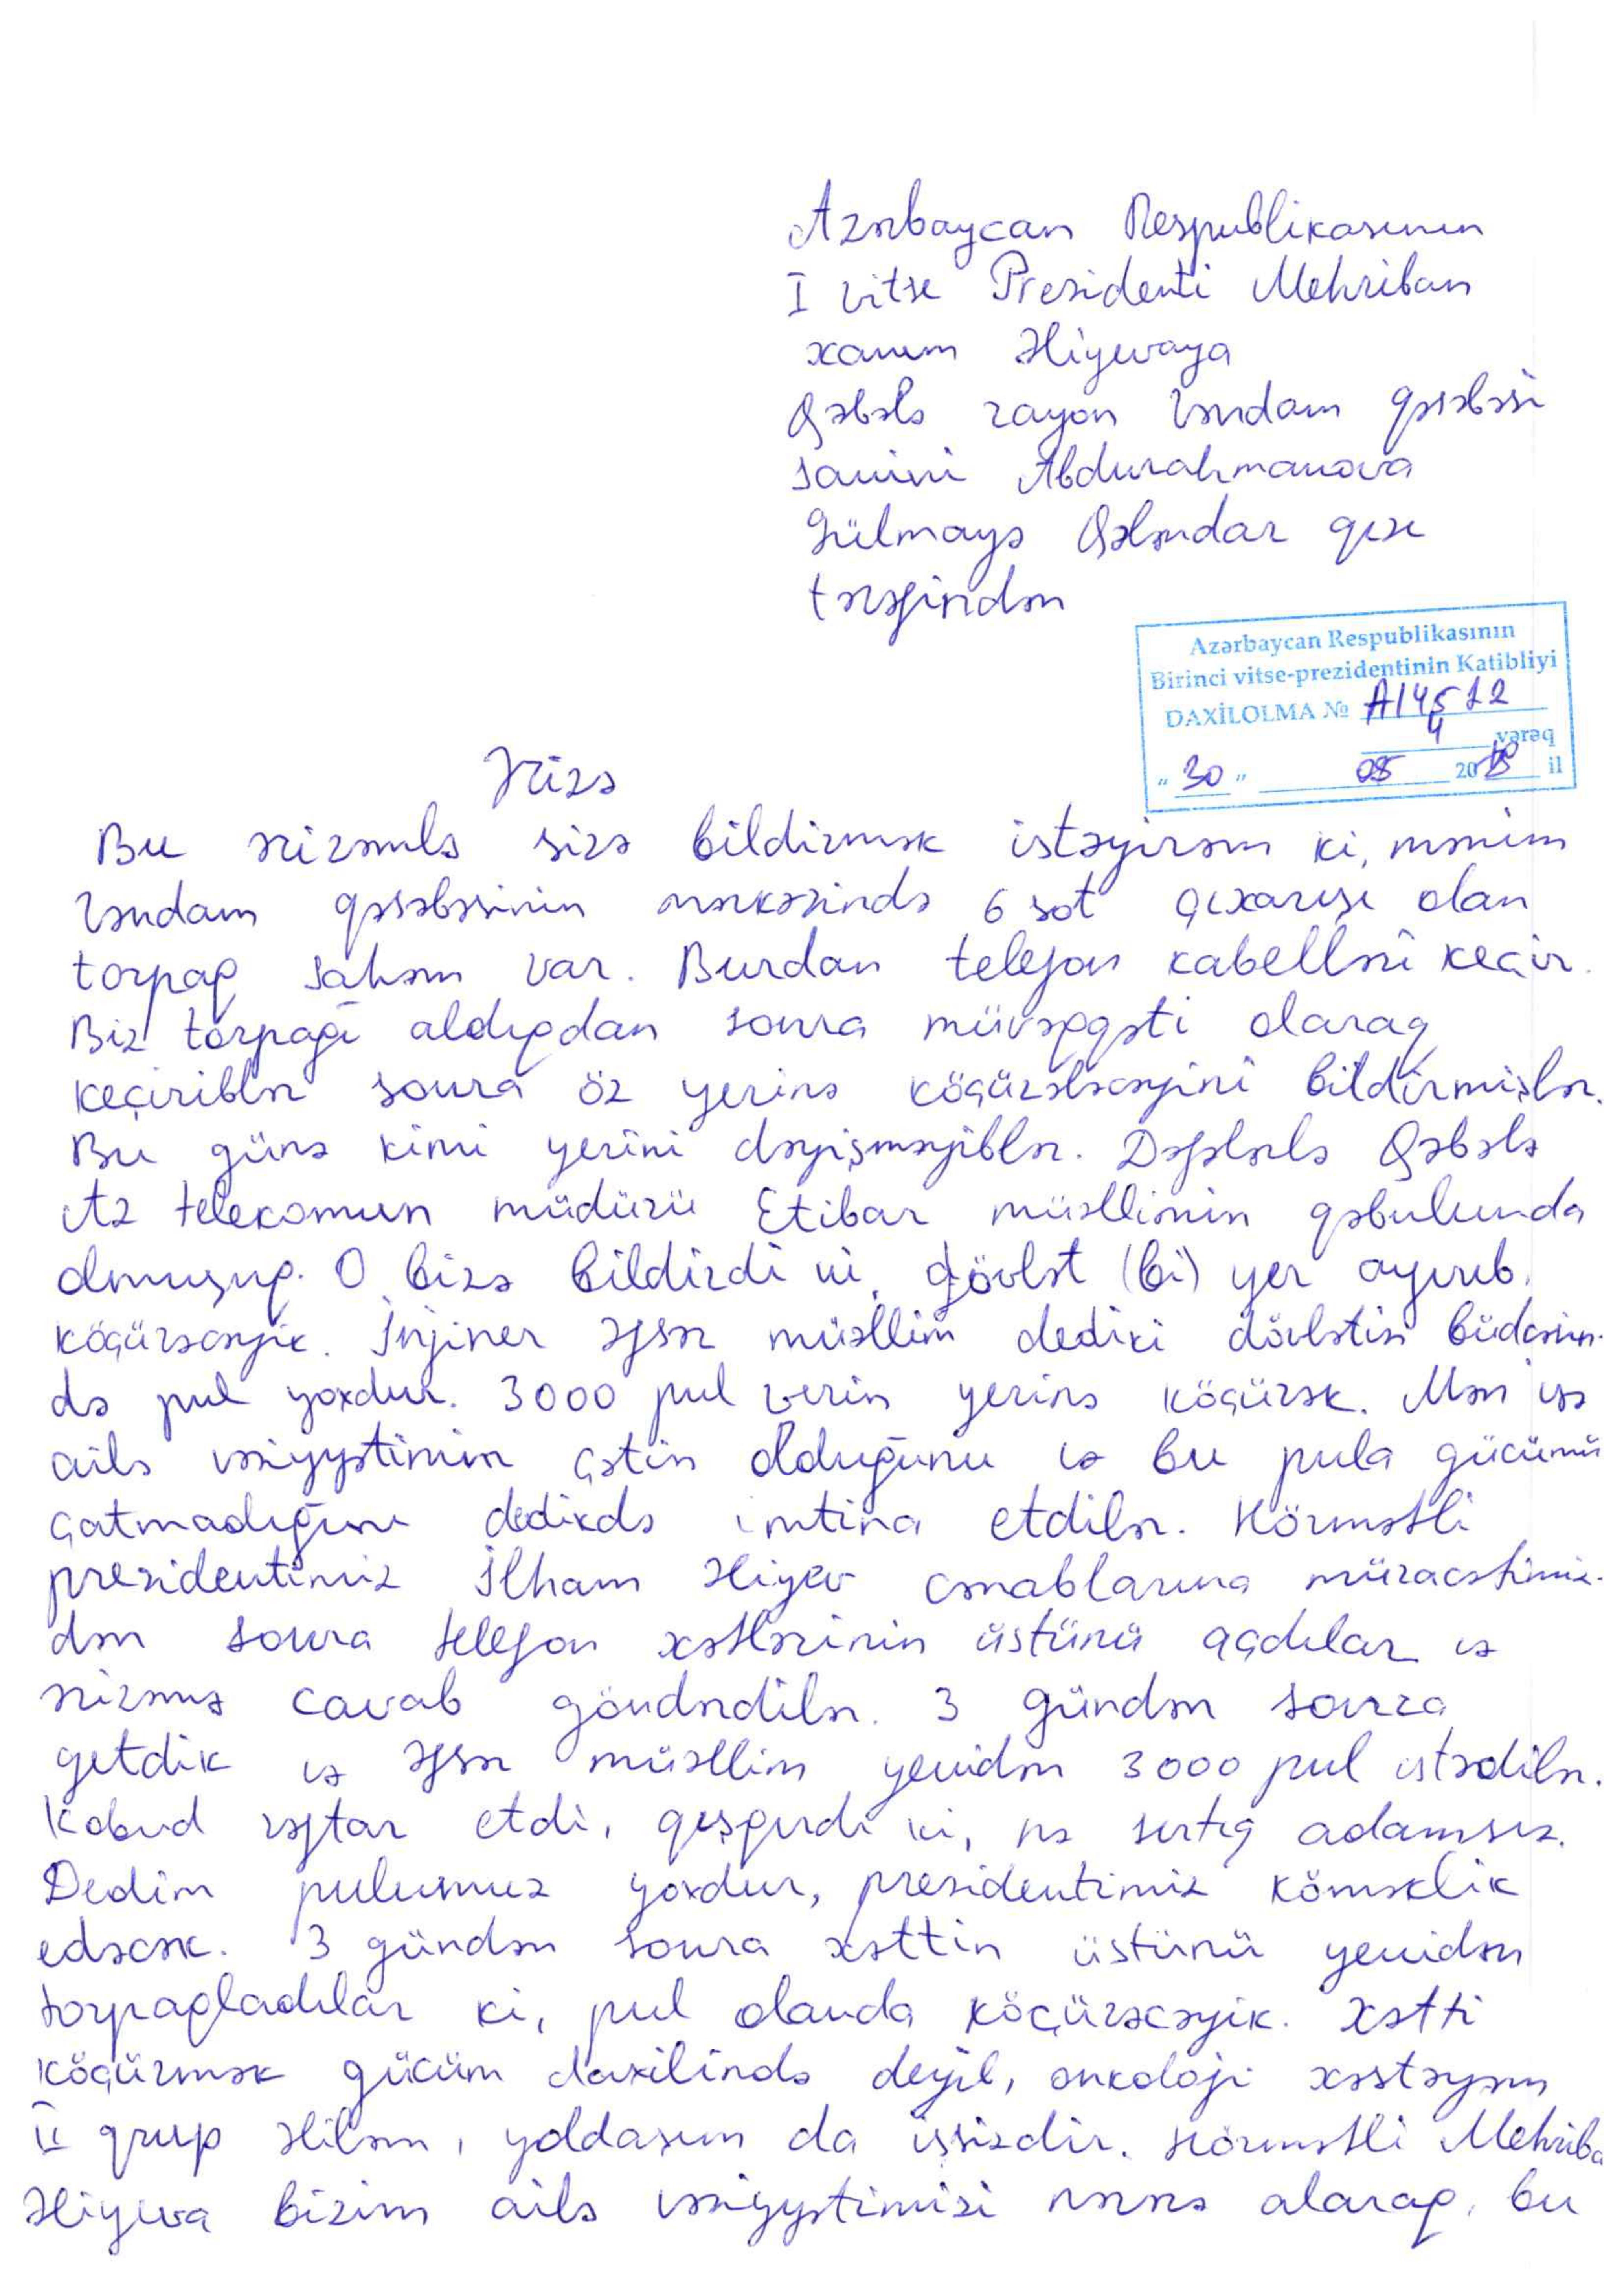 Azərbaycan Respublikasının
I vitse Prezidenti Mehriban
xanım Əliyevaya
Qəbələ rayon Vəndam qəsəbəsi
sakini Abdurahmanova
Gülmayə Qələndər qızı
tərəfindən
Azərbaycan Respublikasının
Birinci vitse-prezidentinin Katibliyi
DAXİLOLMA № A14512
4 vərəq
"30" 05 20 il
Ərizə
Bu ərizəmlə sizə bildirmək istəyirəm ki, mənim
Vəndam qəsəbəsinin mərkəzində 6 sot çıxarışı olan
torpaq sahəm var. Burdan telefon kabelləri keçir.
Biz torpağı aldıqdan sonra müvəqqəti olaraq
keçiriblər sonra öz yerinə köçürələcəyini bildirmişlər.
Bu günə kimi yerini dəyişməyiblər. Dəfələrlə Qəbələ
Az telekomun müdürü Etibar müəllimin qəbulunda
olmuşuq. O bizə bildirdi ki, dövlət (bi) yer ayırıb,
köçürəcəyik. İnjiner Əfsər müəllim dediki dövlətin büdcəsin-
də pul yoxdur. 3000 pul verin yerinə köçürək. Mən isə
ailə vəziyyətimin çətin olduğunu və bu pula gücümü
çatmadığını dedikdə imtina etdilər. Hörmətli
prezidentimiz İlham Əliyev cənablarına müraciətimiz-
dən sonra telefon xətlərinin üstünü açdılar və
ərizəmə cavab göndərdilər. 3 gündən sonra
getdik və Əfsər müəllim yenidən 3000 pul istədilər.
Kobud rəftar etdi, qışqırdı ki, nə sırtıq adamsız.
Dedim pulumuz yoxdur, prezidentimiz köməklik
edəcək. 3 gündən sonra xəttin üstünü yenidən
torpaqladılar ki, pul olanda köçürəcəyik. Xətti
köçürmək gücüm daxilində deyil, onkoloji xəstəyəm
II qrup əliləm, yoldaşım da işsizdir. Hörmətli Mehriba
Əliyeva bizim ailə vəziyyətimizi nəzərə alaraq, bu